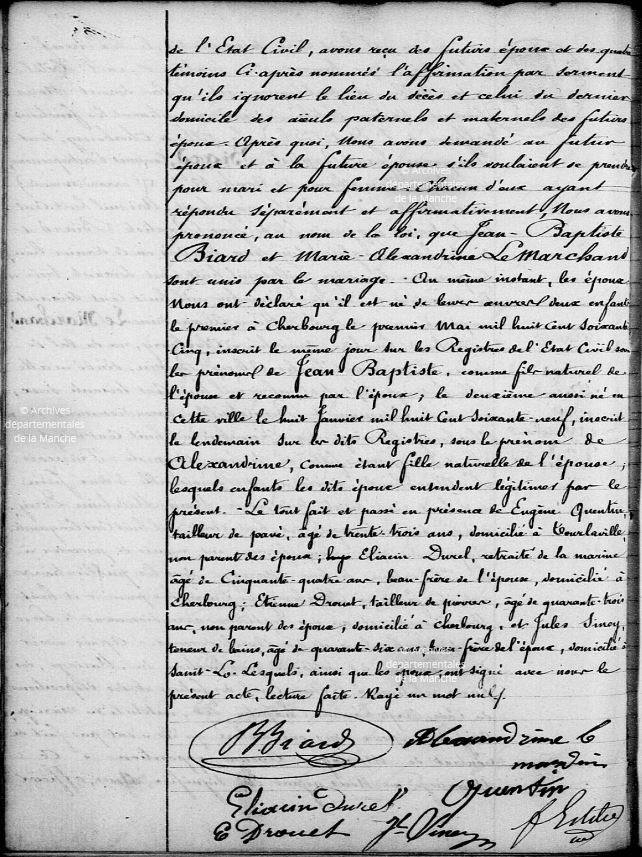 de l'Etat Civil, avons reçu des futurs époux et des quatre
témoins ci-après nommés l'affirmation par serment
qu'ils ignorent le lieu du décès et celui du dernier
domicile des aïeuls paternels et maternels des futurs
époux. Après quoi, Nous avons demandé au futur
époux et à la future épouse s'ils voulaient se prendre
pour mari et pour femme. Chacun d'eux ayant
répondu séparément et affirmativement, Nous avons
prononcé, au nom de la loi, que Jean-Baptiste
Biard et Marie-Alexandrine Le Marchand
sont unis par le mariage. - Au même instant, les époux
Nous ont déclaré qu'il est né de leurs œuvres deux enfants
le premier à Cherbourg le premier Mai mil huit Cent Soixante
Cinq, inscrit le même jour sur les Registres de l'Etat Civil sous
les prénoms de Jean Baptiste, comme fils naturel de
l'épouse et reconnu par l'époux; le deuxième aussi né en
cette ville le huit Janvier mil huit Cent Soixante-neuf, inscrit
le lendemain sur les dits Registres, sous le prénom de
Alexandrine, comme étant fille naturelle de l'épouse;
lesquels enfants les dits époux entendent légitimer par le
présent. - Le tout fait et passé en présence de Eugène Quentin,
tailleur de pavé, âgé de trente-trois ans, domicilié à Tourlaville,
non parent des époux; Eliacin Durel, retraité de la marine
âgé de Cinquante-quatre ans, beau-frère de l'épouse, domicilié à
Cherbourg; Etienne Drouet, tailleur de pierres, âgé de quarante-trois
ans, non parent des époux, domicilié à Cherbourg, et Jules Simey,
teneur de bains, âgé de quarante-six ans, beau-frère de l'époux, domicilié à
Saint-Lo. Lesquels, ainsi que les époux ont signé avec nous le
présent acte, lecture faite. Rayé un mot nul.
Le Marchand
© Archives
départementales
de la Manche
© Archives
départementales
de la Manche
© Archives
départementales
de la Manche
Biard
Alexandrine le
Eliacin Durel
Quentin
E Drouet